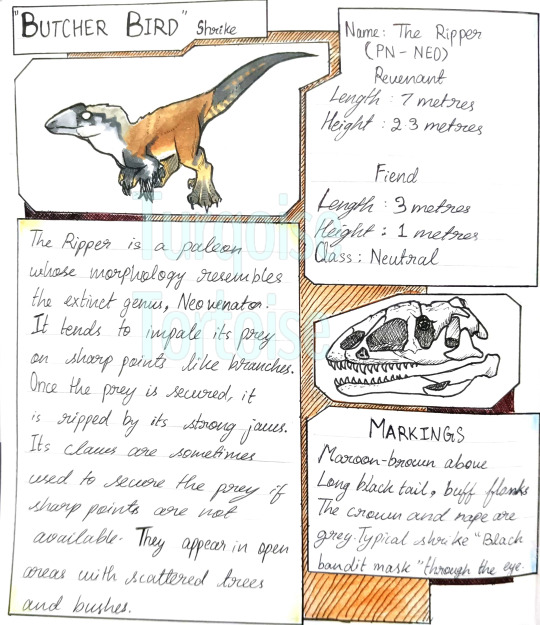 "BUTCHER BIRD" Shrike
Name: The Ripper
(PN - NEO)
Revenant
Length : 7 metres
Height : 2.3 metres
Fiend
Length : 3 metres
Height : 1 metres
Class : Neutral
The Ripper is a paleon
whose morphology resembles
the extinct genus, Neovenator.
It tends to impale its prey
on sharp points like branches.
Once the prey is secured, it
is ripped by its strong jaws.
Its claws are sometimes
used to secure the prey if
sharp points are not
available. They appear in open
areas with scattered trees
and bushes.
MARKINGS
Maroon-brown above
Long black tail, buff flanks
The crown and nape are
grey. Typical shrike "Black
bandit mask" through the eye.
Turnoise
Tortoise